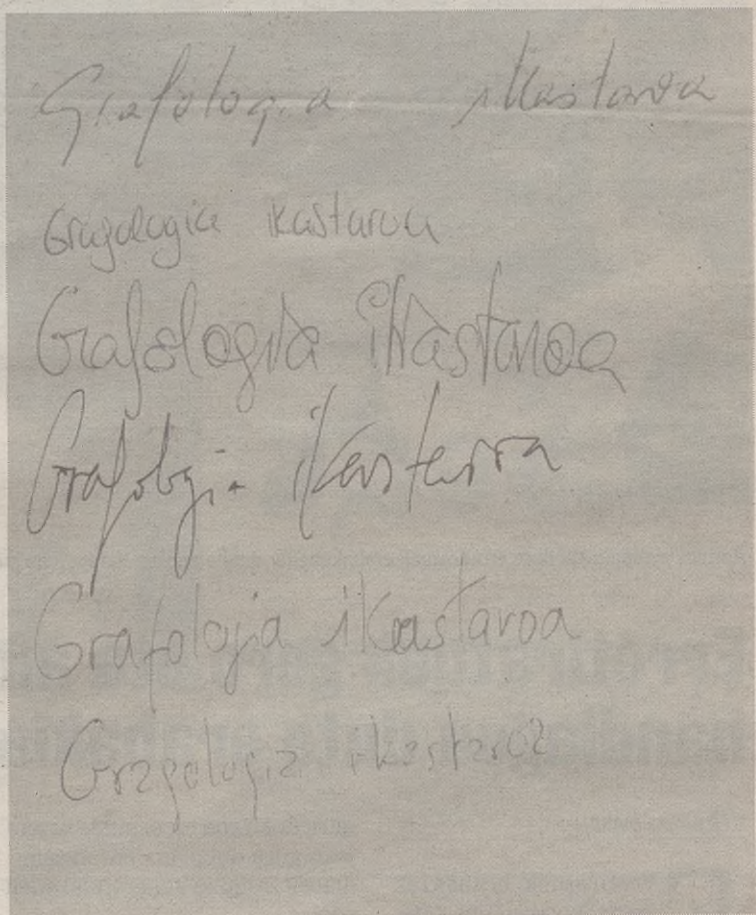 Grafologia ikastaroa
Grafologia ikastaroa
Grafologia ikastaroa
Grafologia ikastaroa
Grafologia ikastaroa
Grafologia ikastaroa